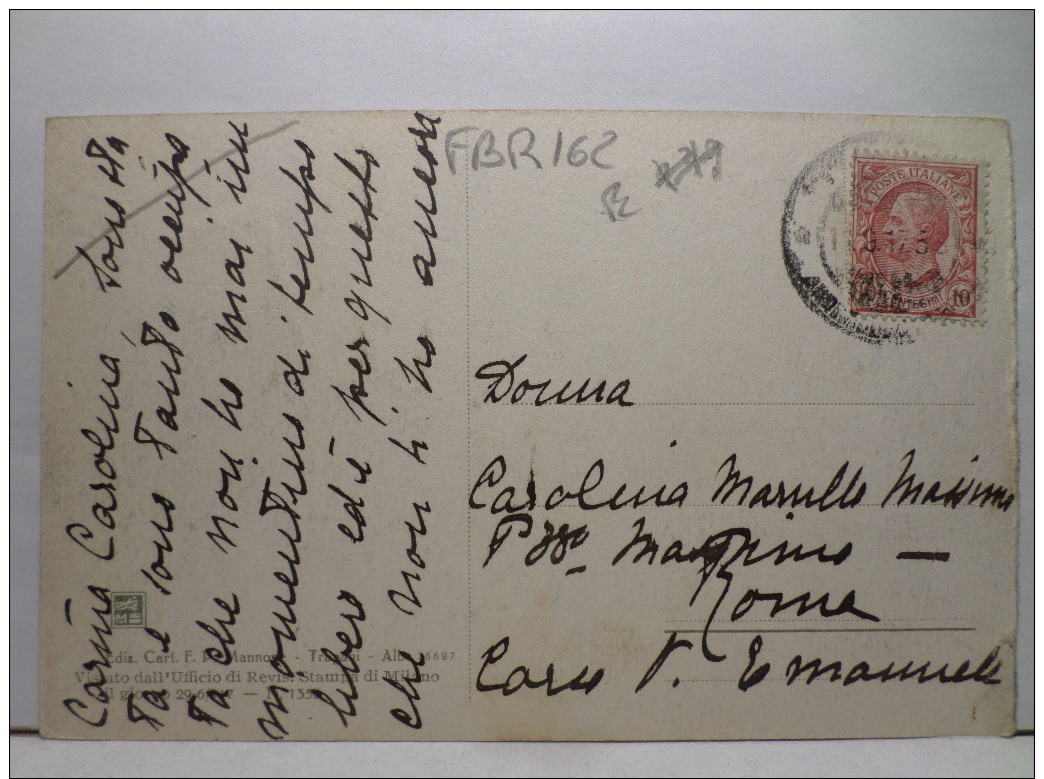 Carina Carolina, sono sta
ta e sono tanto occupa
ta che non ho mai un
momentino di tempo
libero ed è per questo
che non ti ho ancora
FBR 162
POSTE ITALIANE
CENTESIMI 10
Donna
Carolina Marullo Massimo
P.zzo Massimo —
Roma
Corso V. Emanuele
Ediz. Cart. F. Mannone - Trapani - Alb. 6697
Vistato dall'Ufficio di Revis. Stampa di Milano
il giorno 29-6-17 —